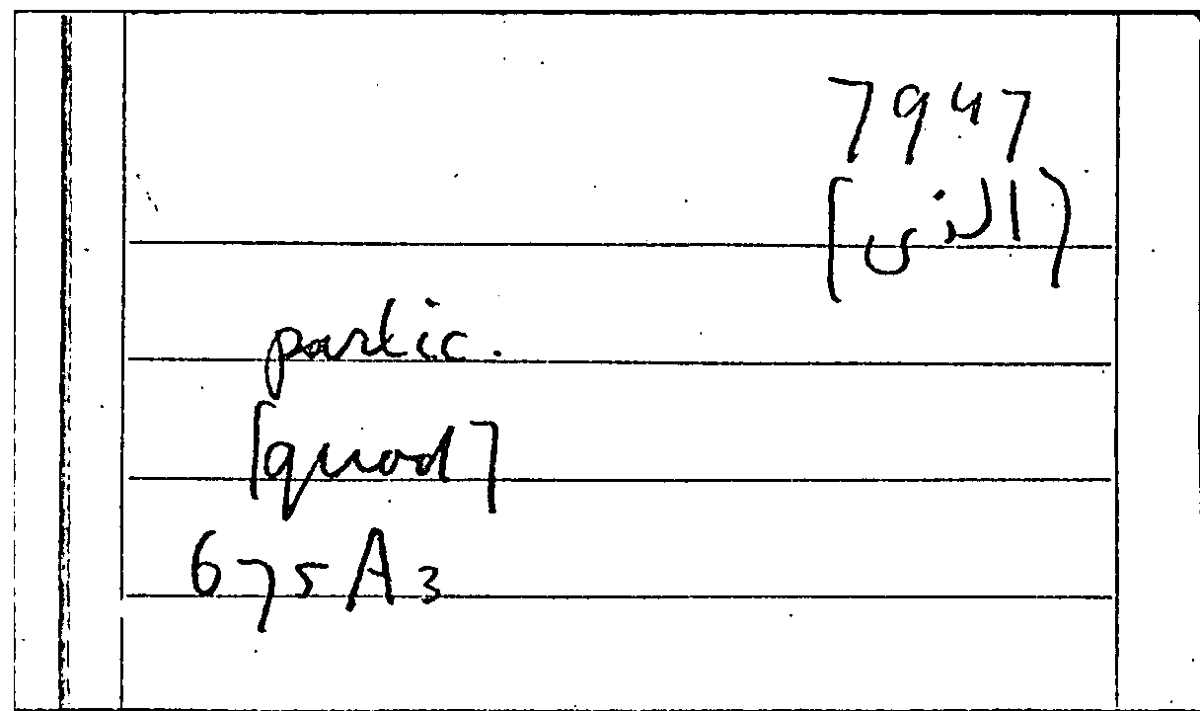 7947
[الذى)
partic.
[quod]
675A3